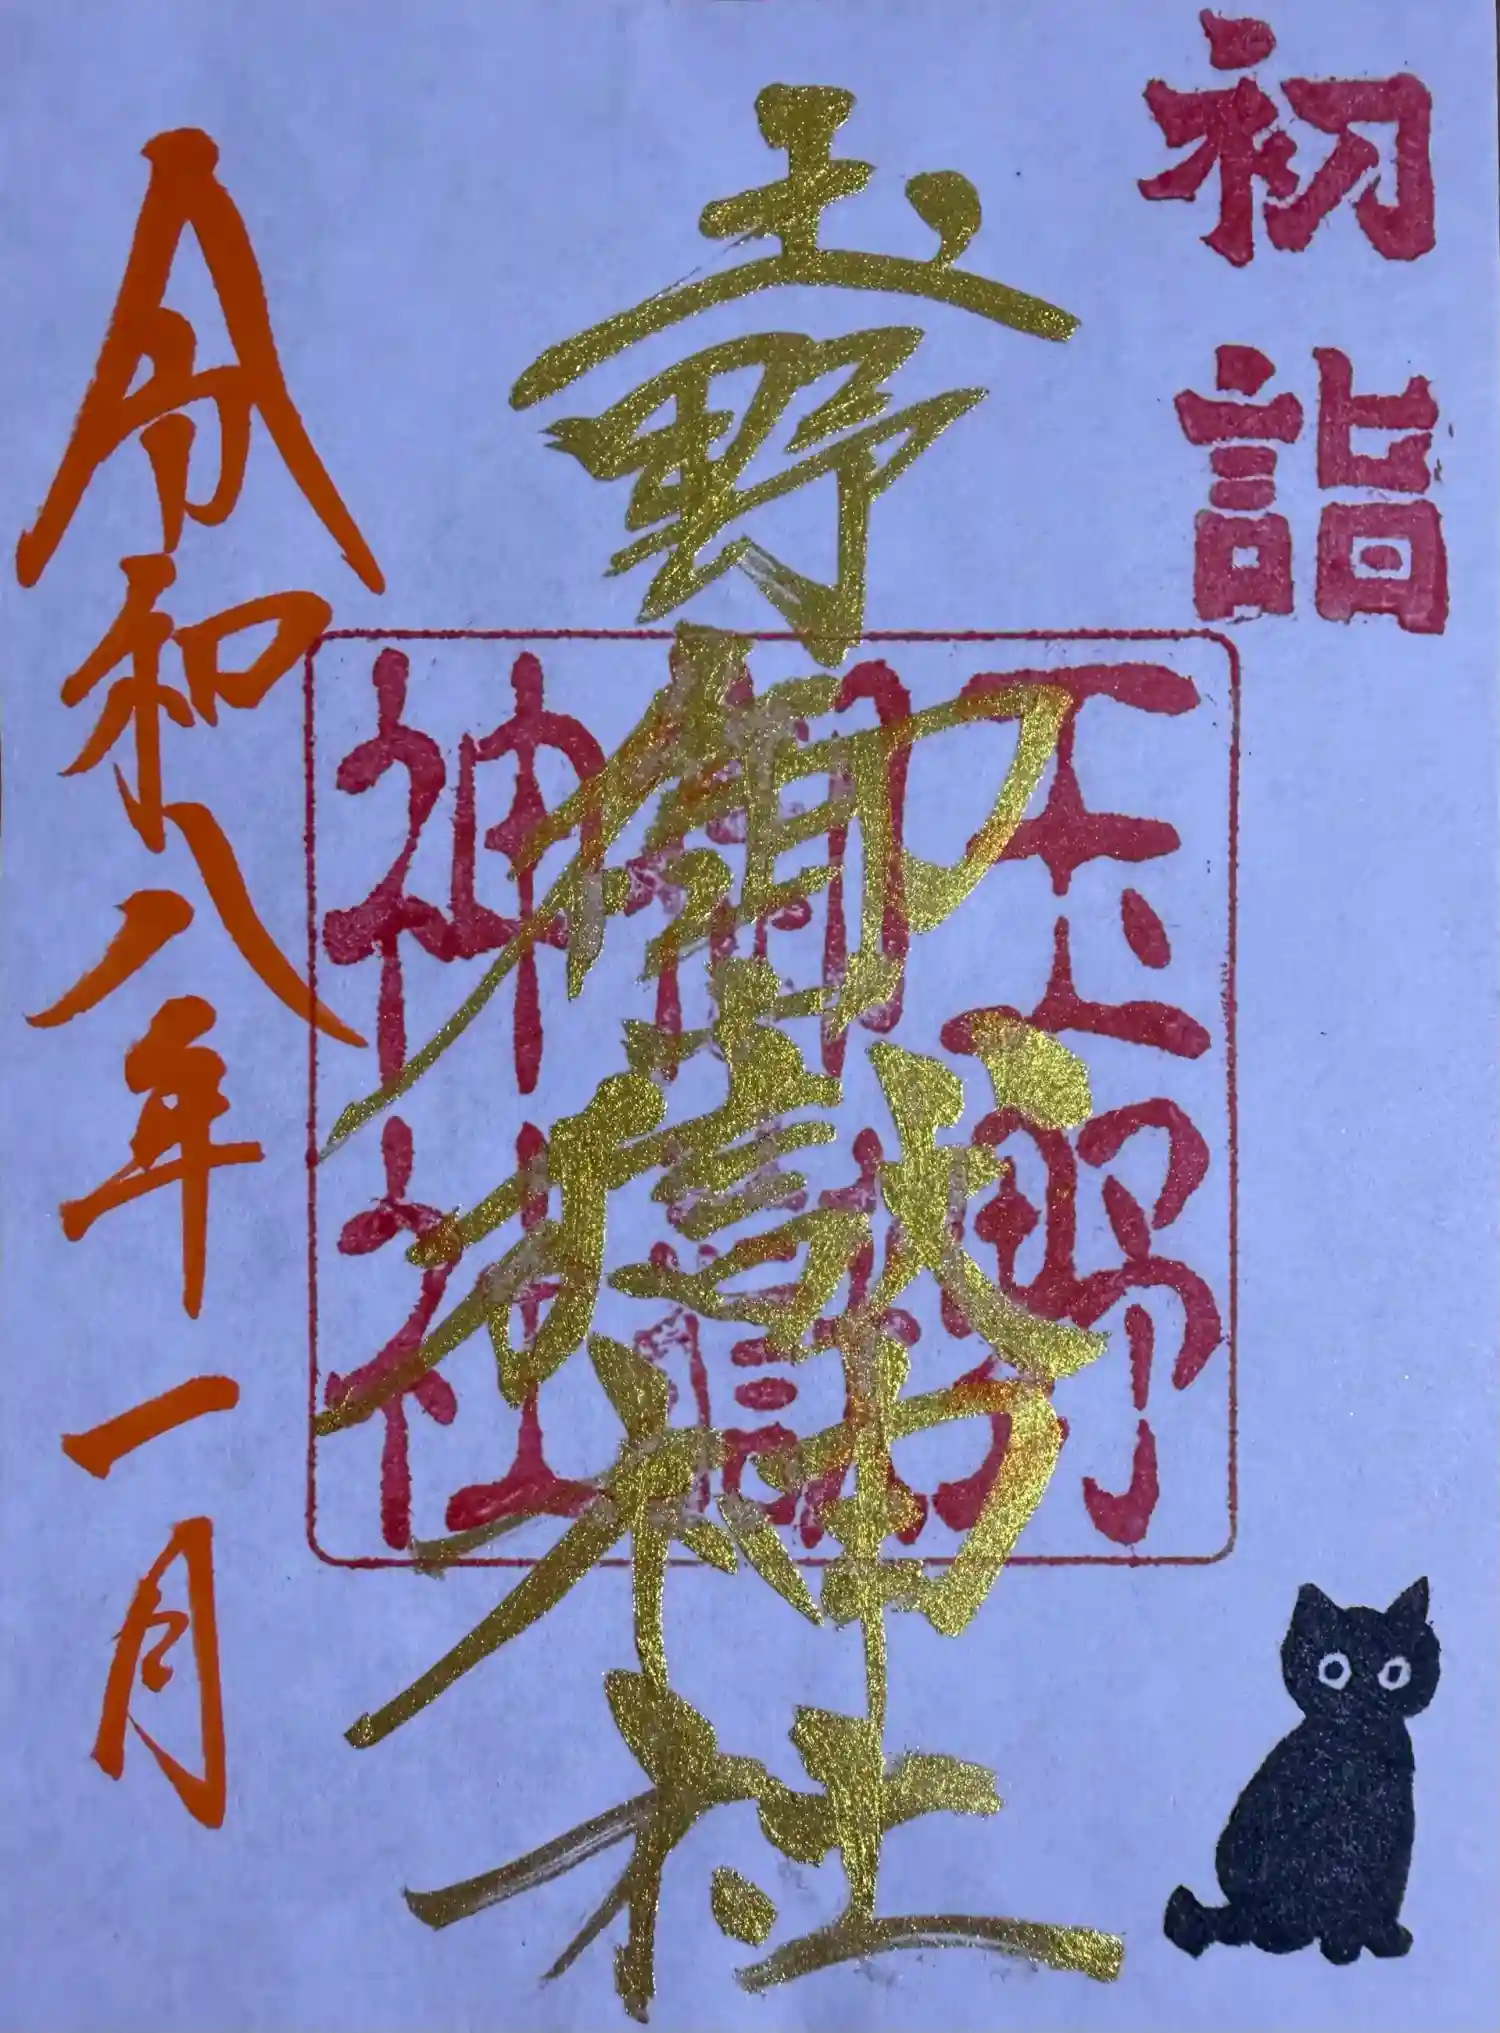 初詣
玉野御嶽神社
玉野
御嶽
神社
令和八年一月